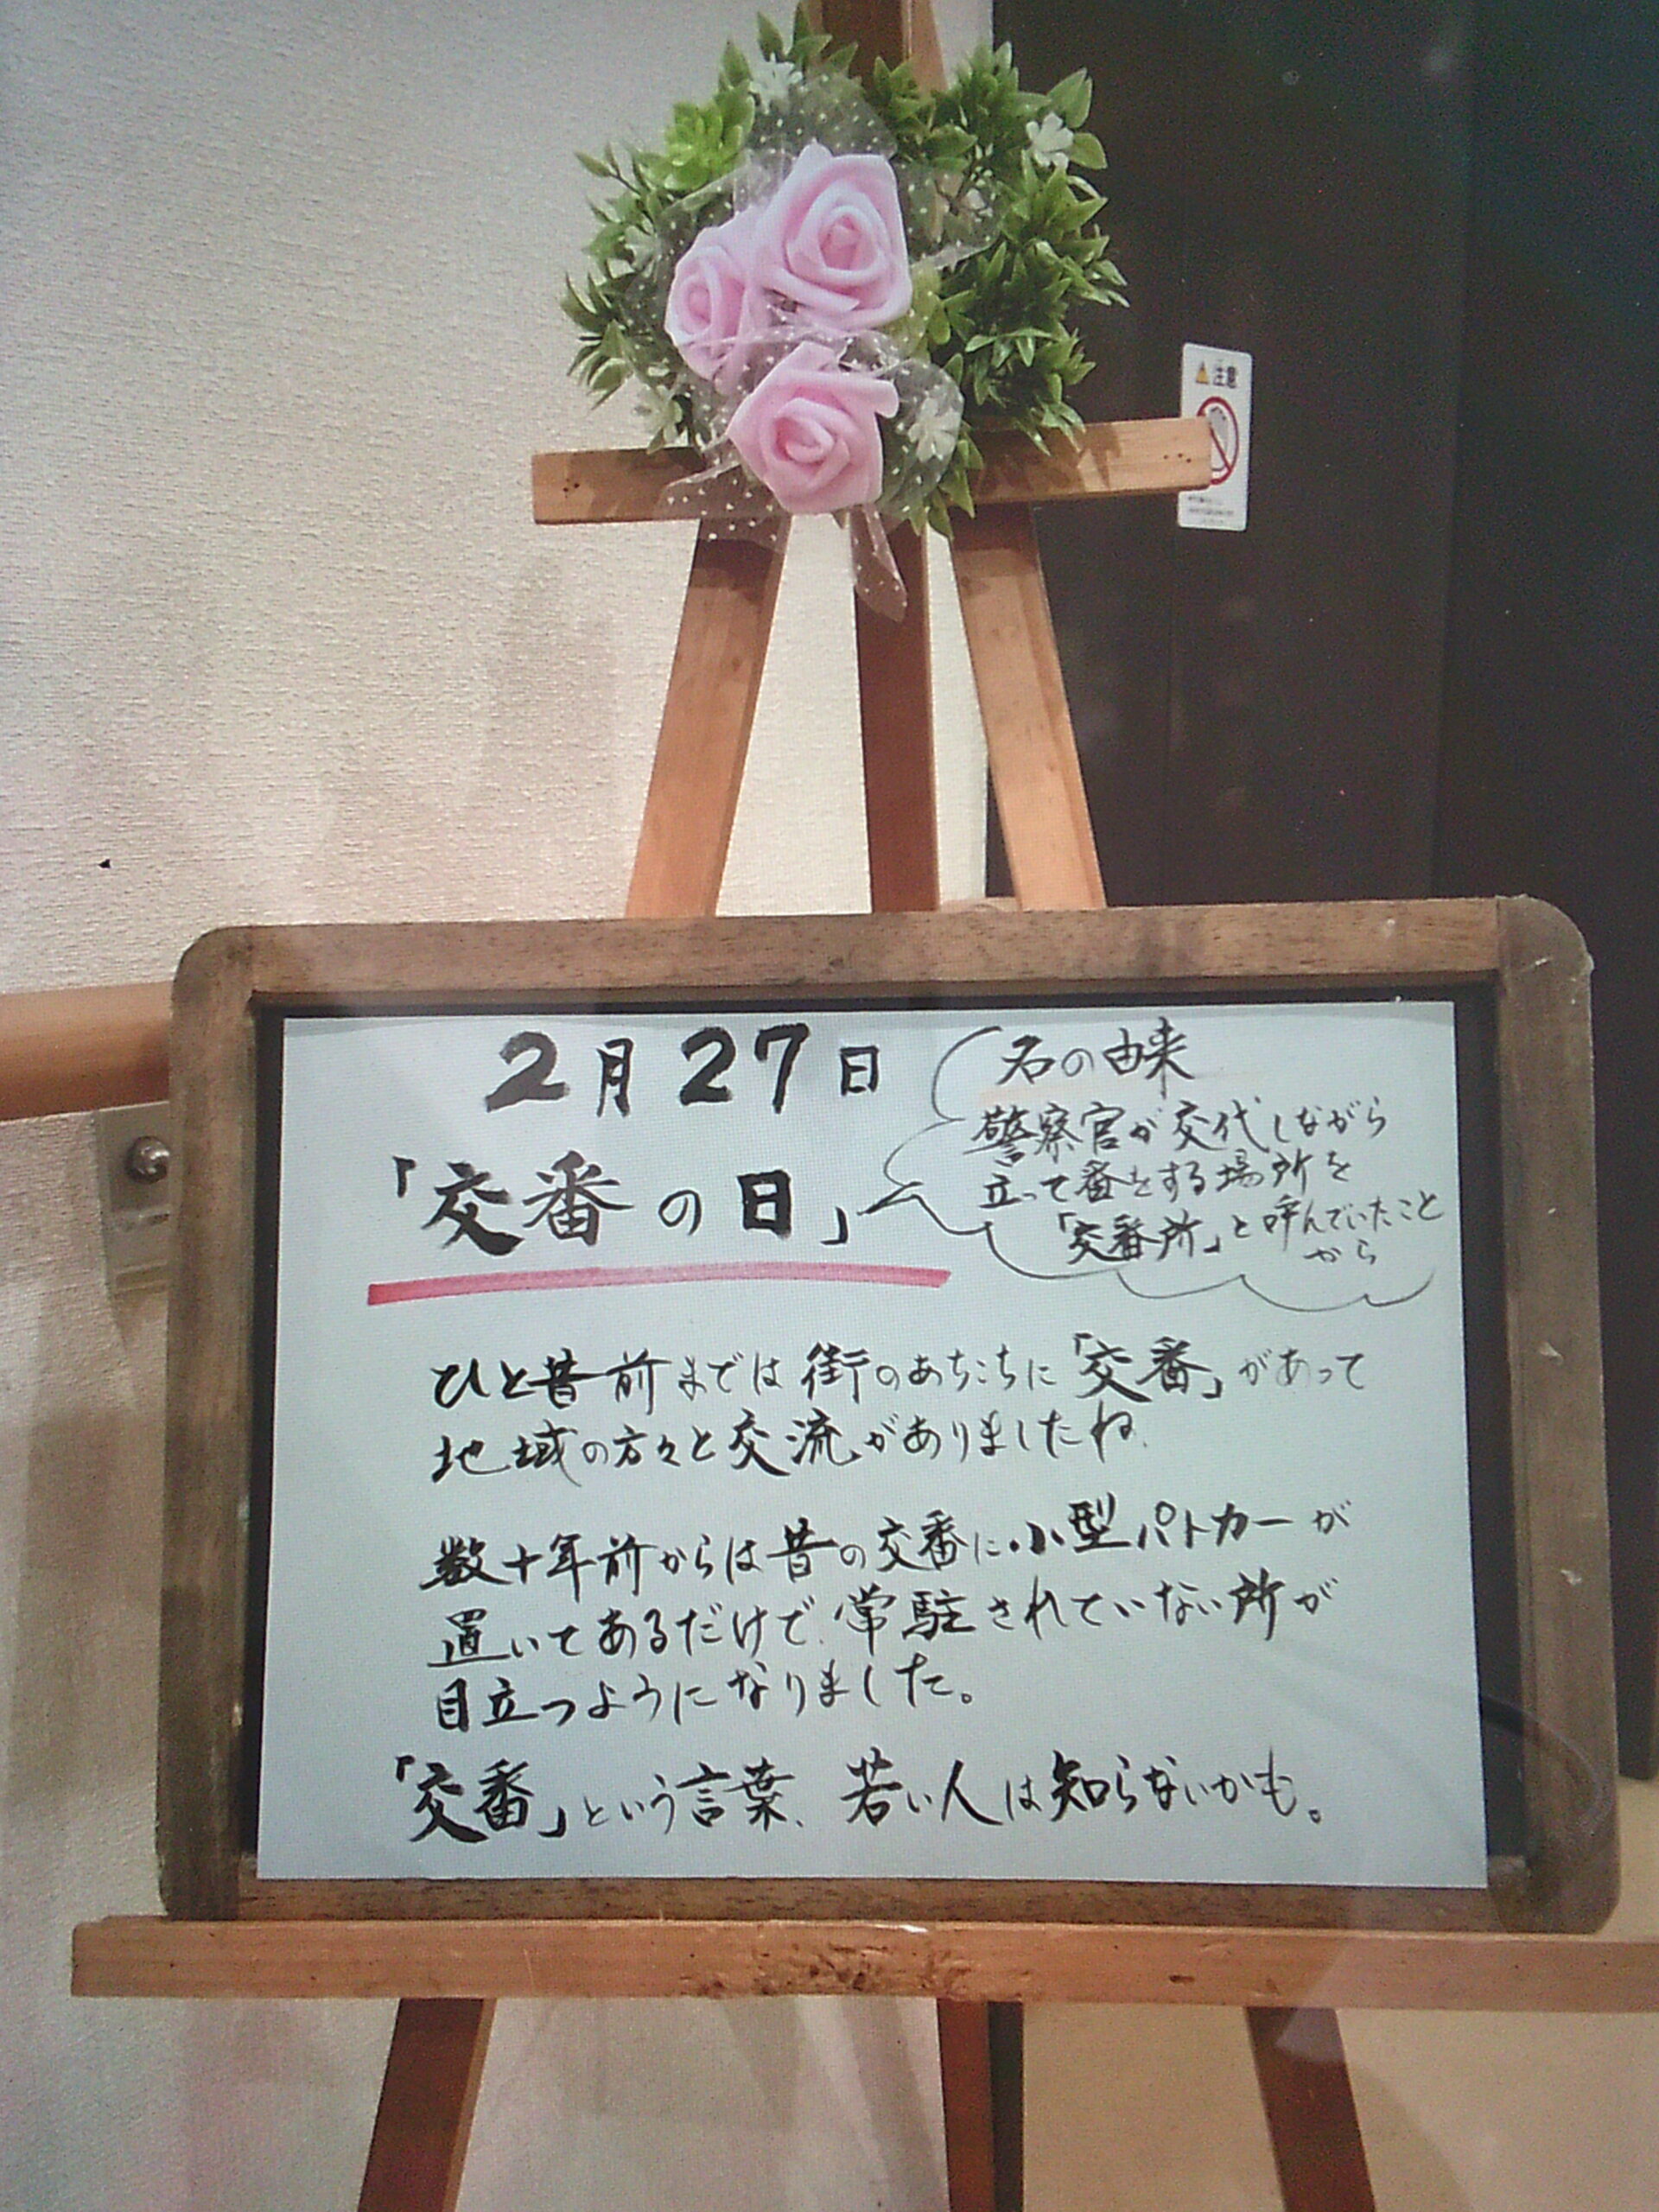 注意
2月27日
「交番の日」
名の由来
警察官が交代しながら
立って番をする場所を
「交番所」と呼んでいたこと
から
ひと昔前までは街のあちこちに「交番」があって
地域の方々と交流がありましたね.
数十年前からは昔の交番に小型パトカーが
置いてあるだけで、常駐されていない所が
目立つようになりました。
「交番」という言葉、若い人は知らないかも。